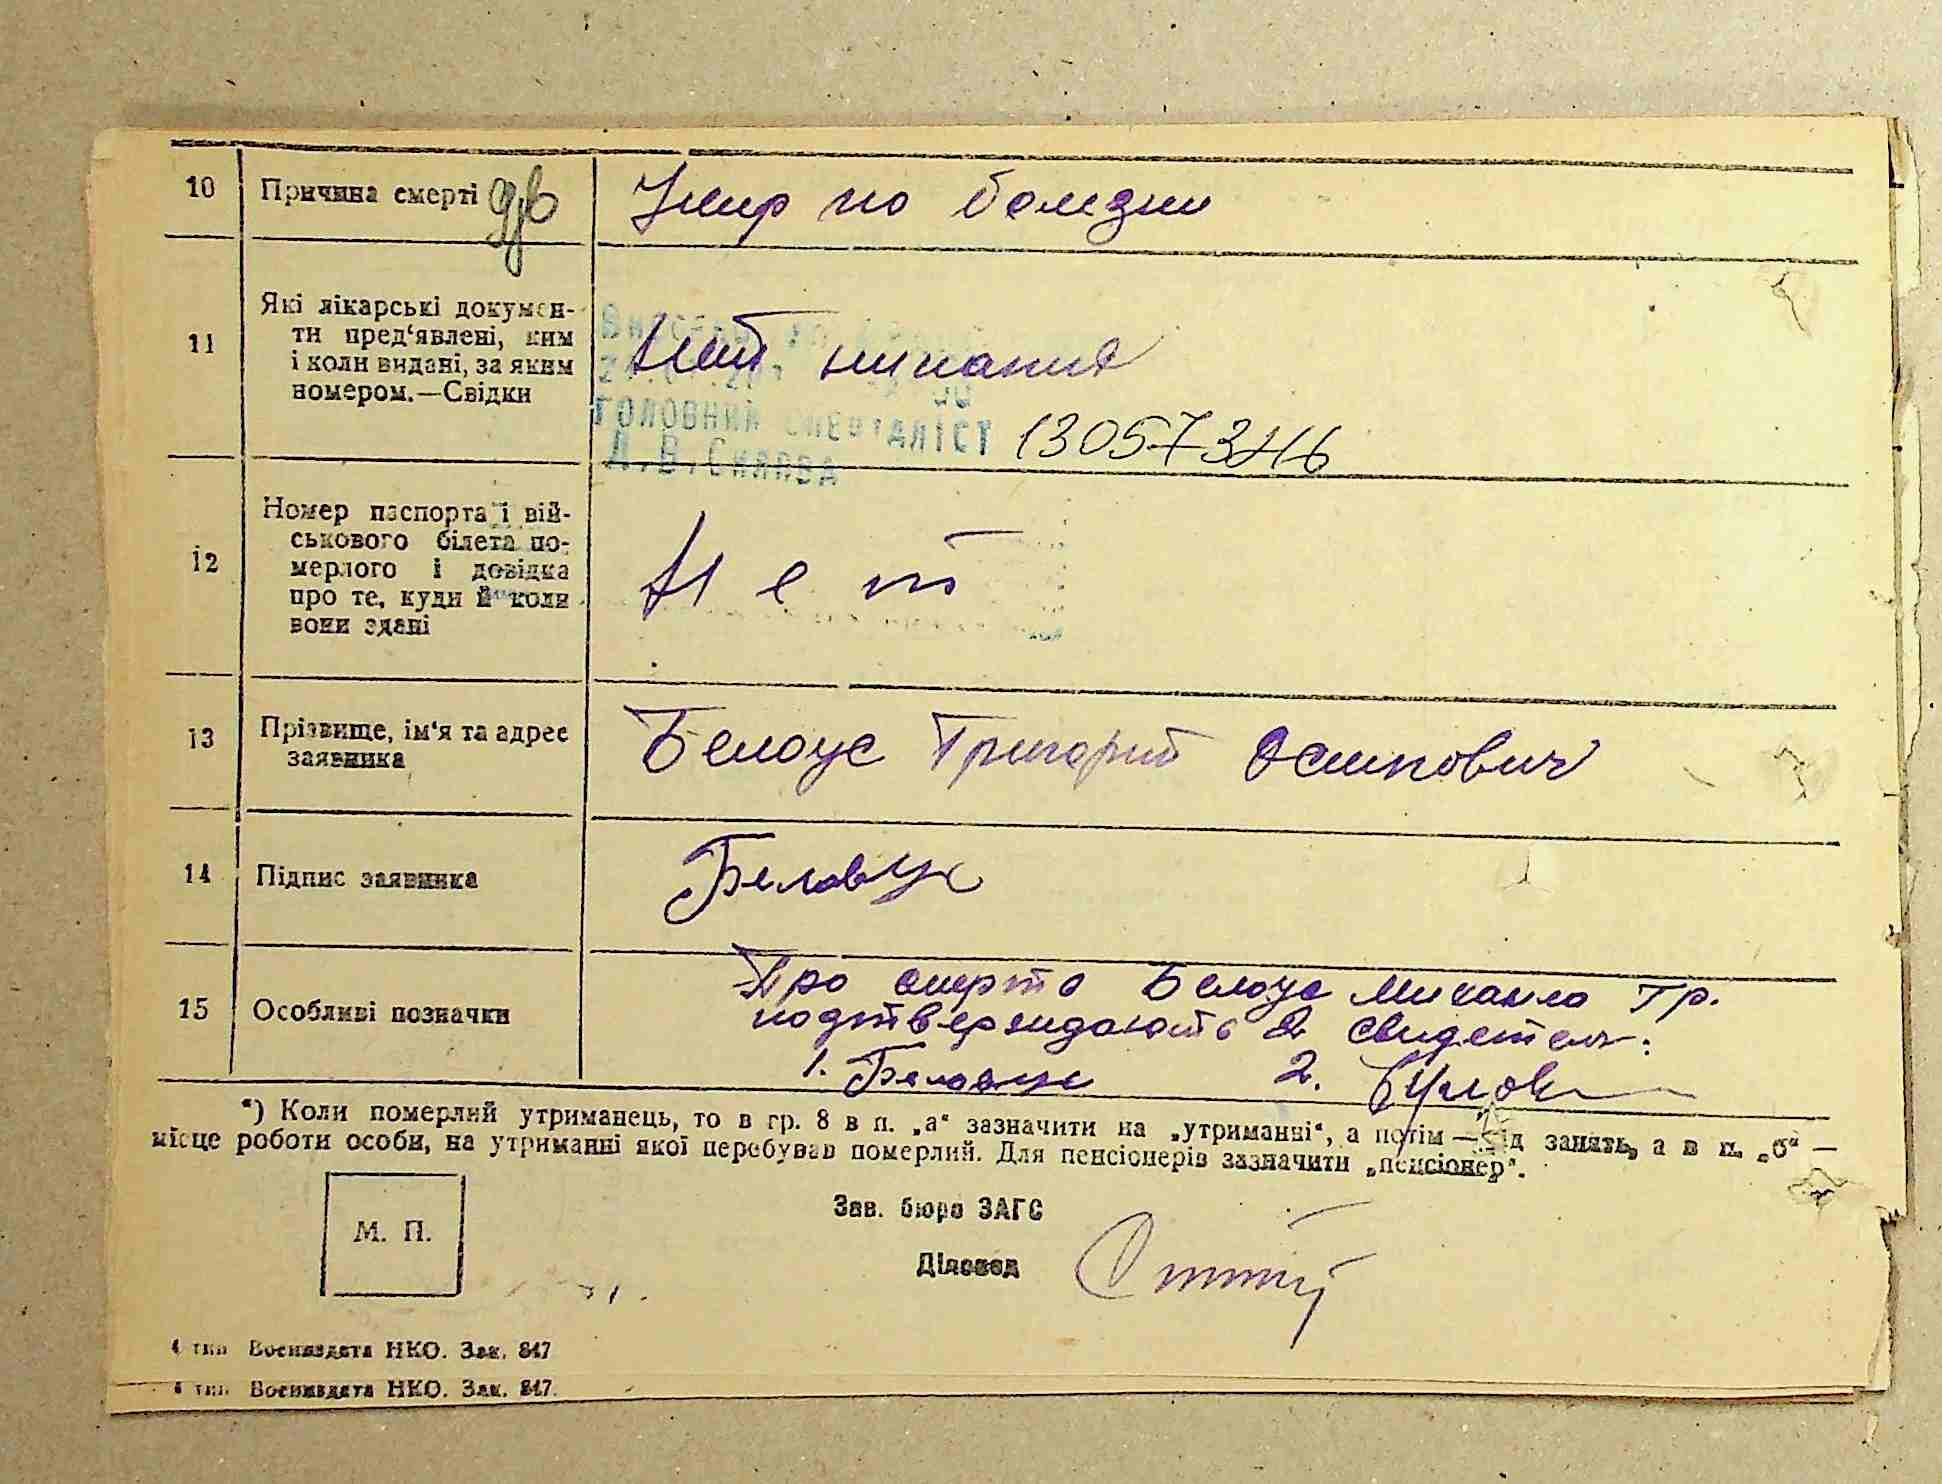 10 Причина смерті Умер по болезни
11 Які лікарські докумен-
ти пред'явлені, ким
і коли видані, за яким
номером.—Свідки
Нет
ГОЛОВНИЙ СПЕЦІАЛІСТ
13057346
12 Номер паспорта і вій-
ськового білета по-
мерлого і довідка
про те, куди й коли
вони здані
Нет
13 Прізвище, ім'я та адрес
заявника
Белоус Григорий Осипович
14 Підпис заявника Беловус
15 Особливі позначки
Про смерть Белоус Михаило Гр.
подтверждають 2 свидетели:
1. Беловус 2.
*) Коли померлий утриманець, то в гр. 8 в п. „а" зазначити на „утриманні", а потім — від занять, а в п. „б" —
місце роботи особи, на утриманні якої перебував померлий. Для пенсіонерів зазначити „пенсіонер".
М. П.
Зав. бюро ЗАГС
Діловод
4 тип Воениздата НКО. Зак. 847
4 тип. Воениздата НКО. Зак. 847.